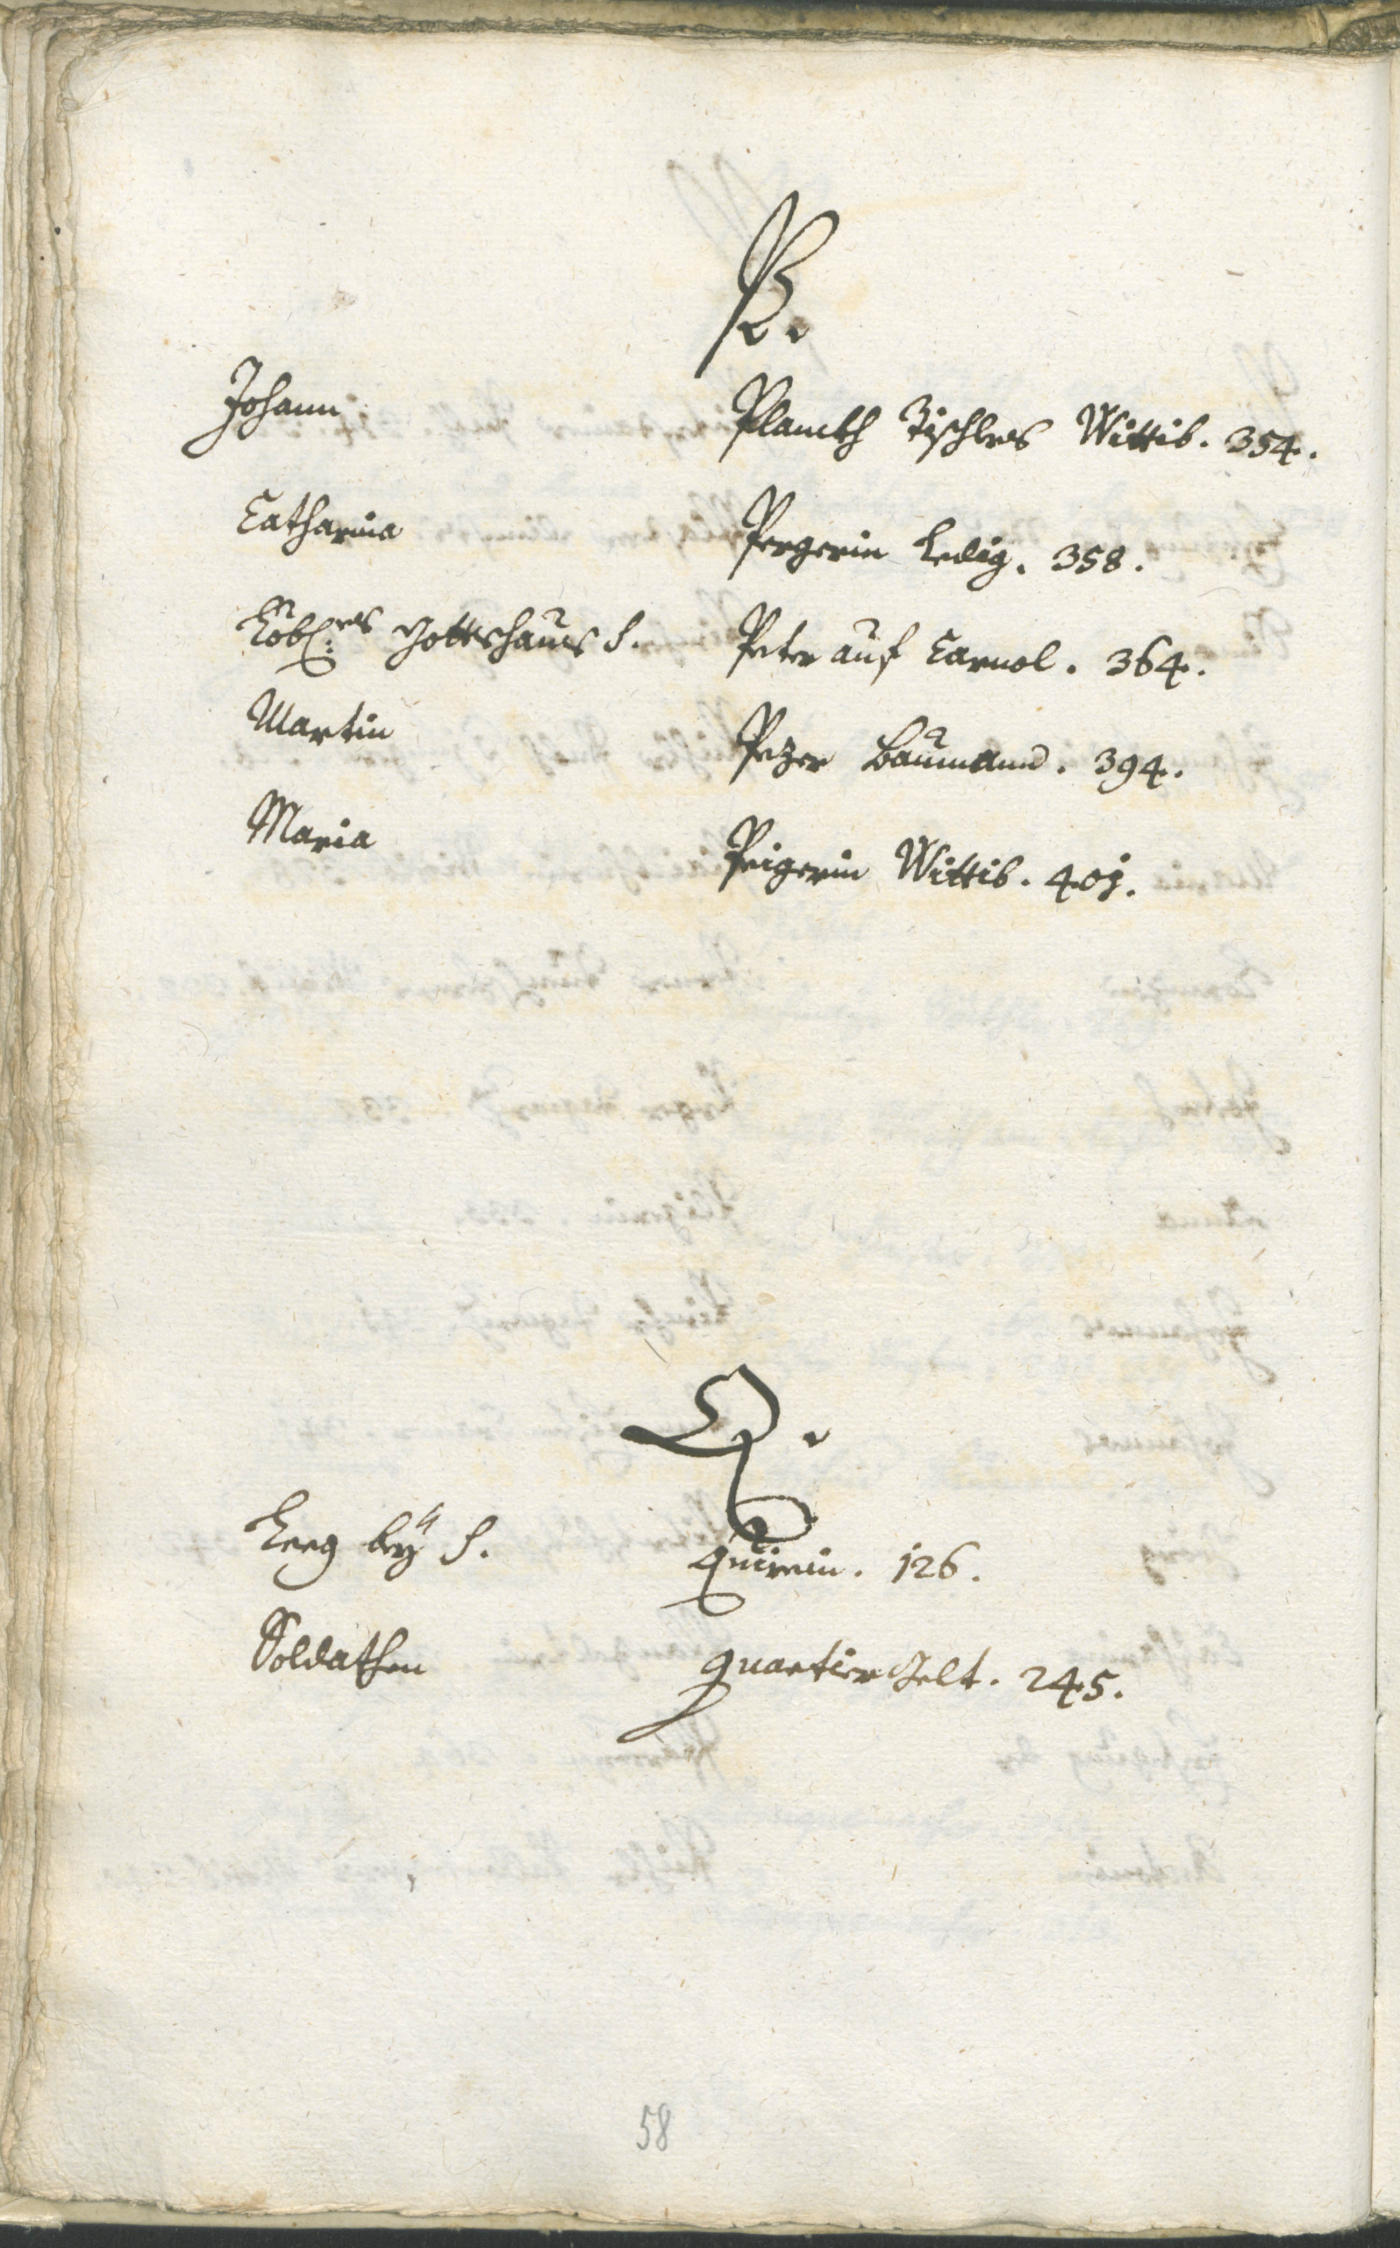 P.
Johann Planckh Tischlers Wittib. 354.
Catharina Pergerin Ledig. 358.
Löbl:es Gottshaus S. Peter auf Carnol. 364.
Martin Pezer Baumann. 394.
Maria Peigerin Wittib. 401.
Q.
Leeg bey S. Quirein. 126.
Soldathen Quartier Gelt. 245.
58